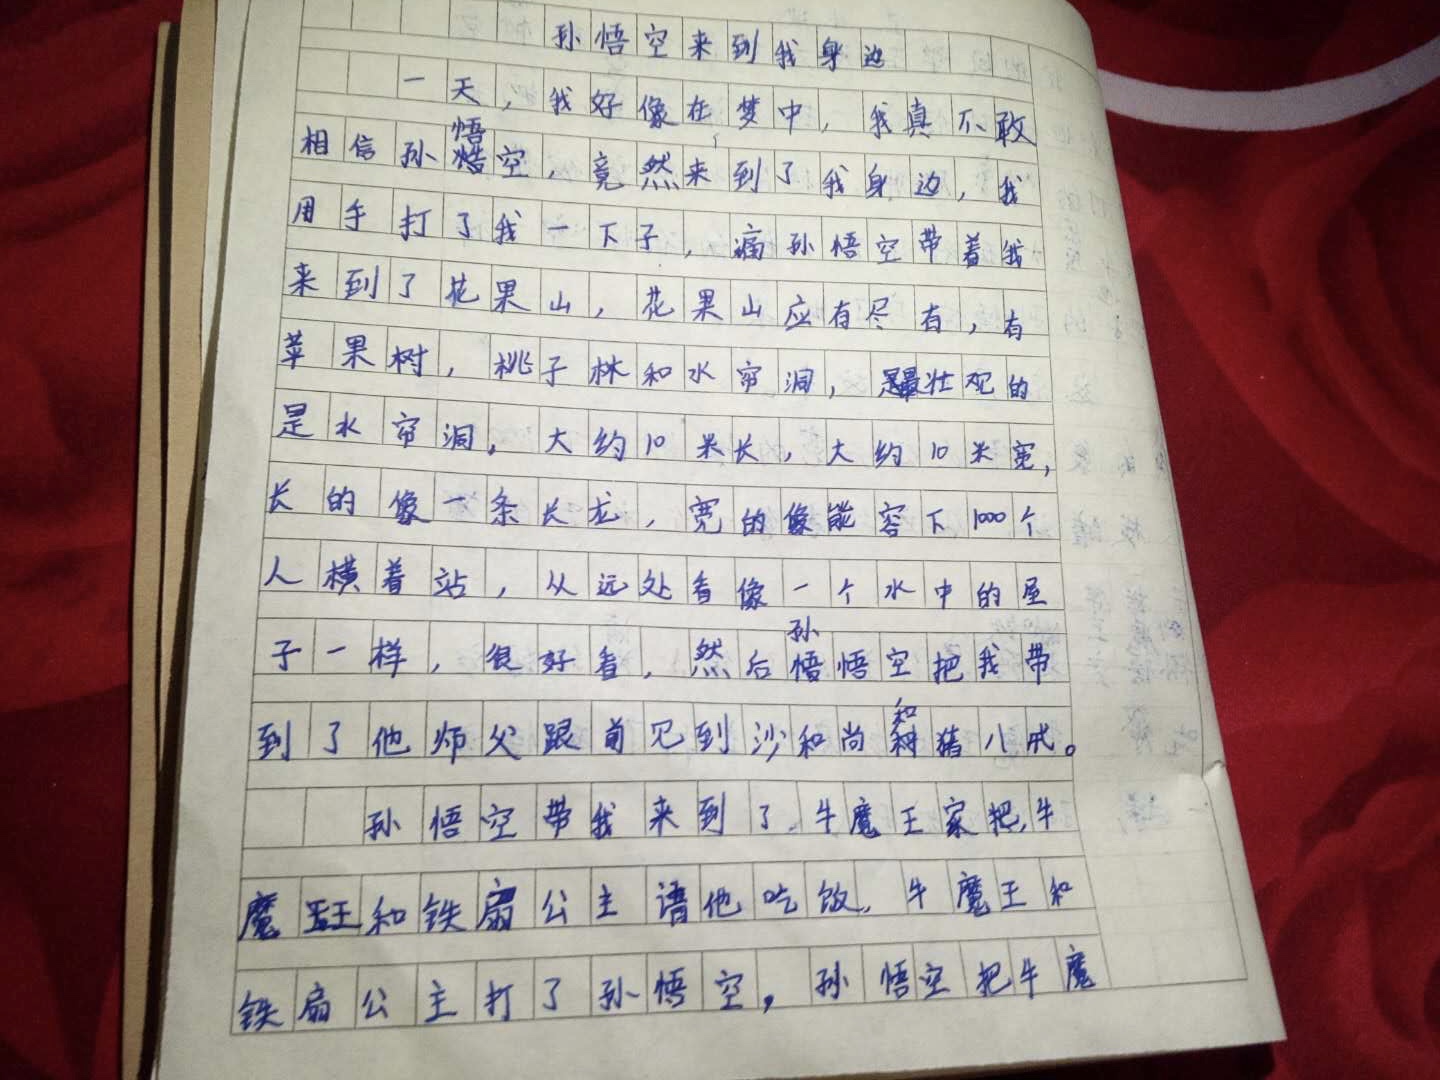 孙悟空来到我身边
一天，我好像在梦中，我真不敢
相信孙悟空，竟然来到了我身边，我
用手打了我一下子，痛孙悟空带着我
来到了花果山，花果山应有尽有，有
苹果树，桃子林和水帘洞，最壮观的
是水帘洞。大约10米长，大约10米宽，
长的像一条长龙，宽的像能容下1000个
人横着站，从远处看像一个水中的屋
子一样，很好看，然后孙悟悟空把我带
到了他师父跟前见到沙和尚和猪八戒。
孙悟空带我来到了牛魔王家把牛
魔王和铁扇公主语他吃饭，牛魔王和
铁扇公主打了孙悟空，孙悟空把牛魔